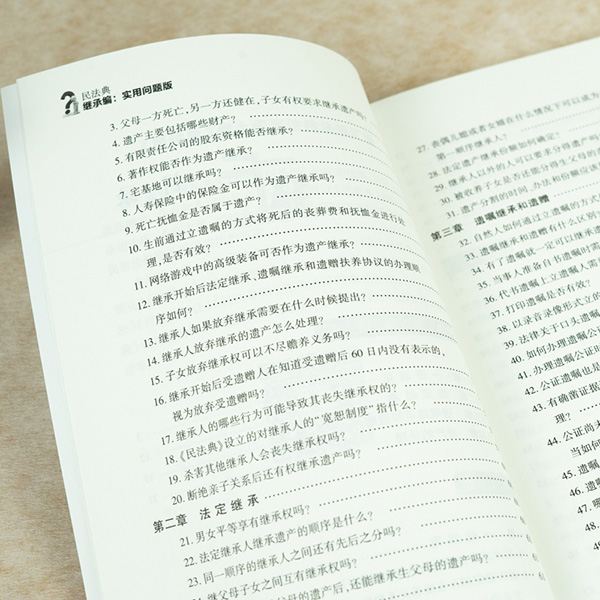 民法典
继承编：实用问题版
3. 父母一方死亡，另一方还健在，子女有权要求继承遗产吗？
4. 遗产主要包括哪些财产？
5. 有限责任公司的股东资格能否继承？
6. 著作权能否作为遗产继承？
7. 宅基地可以继承吗？
8. 人寿保险中的保险金可以作为遗产继承吗？
9. 死亡抚恤金是否属于遗产？
10. 生前通过立遗嘱的方式将死后的丧葬费和抚恤金进行处
理，是否有效？
11. 网络游戏中的高级装备可否作为遗产继承？
12. 继承开始后法定继承、遗嘱继承和遗赠扶养协议的办理顺
序如何？
13. 继承人如果放弃继承需要在什么时候提出？
14. 继承人放弃继承的遗产怎么处理？
15. 子女放弃继承权可以不尽赡养义务吗？
16. 继承开始后受遗赠人在知道受遗赠后 60 日内没有表示的，
视为放弃受遗赠吗？
17. 继承人的哪些行为可能导致其丧失继承权的？
18.《民法典》设立的对继承人的“宽恕制度”指什么？
19. 杀害其他继承人会丧失继承权吗？
20. 断绝亲子关系后还有权继承遗产吗？
第二章 法定继承
21. 男女平等享有继承权吗？
22. 法定继承人继承遗产的顺序是什么？
23. 同一顺序的继承人之间还有先后之分吗？
继父母子女之间互有继承权吗？
父母的遗产后，还能继承生父母的遗产吗？
27. 丧偶儿媳或者女婿在什么情况下可以成为
第一顺序继承人？
28. 法定遗产继承份额如何确定？
29. 继承人以外的人可以要求分得遗产吗
30. 被收养子女是否还能分得生父母的
31. 遗产分割的时间、办法和份额应该
第三章 遗嘱继承和遗赠
32. 自然人如何通过立遗嘱的方式
33. 遗嘱继承和遗赠有什么区别
34. 有了遗嘱就一定可以继承遗
35. 当事人准备自书遗嘱时
36. 代书遗嘱上立遗嘱人需
37. 打印遗嘱是否有效？
38. 以录音录像形式立的
39. 法律关于口头遗嘱
40. 如何办理遗嘱公证
41. 办理遗嘱公证时
42. 公证遗嘱也是
43. 有确凿证据
理？
44. 公证尚未
当如何
45. 遗嘱
46. 遗
47. 哪
48.